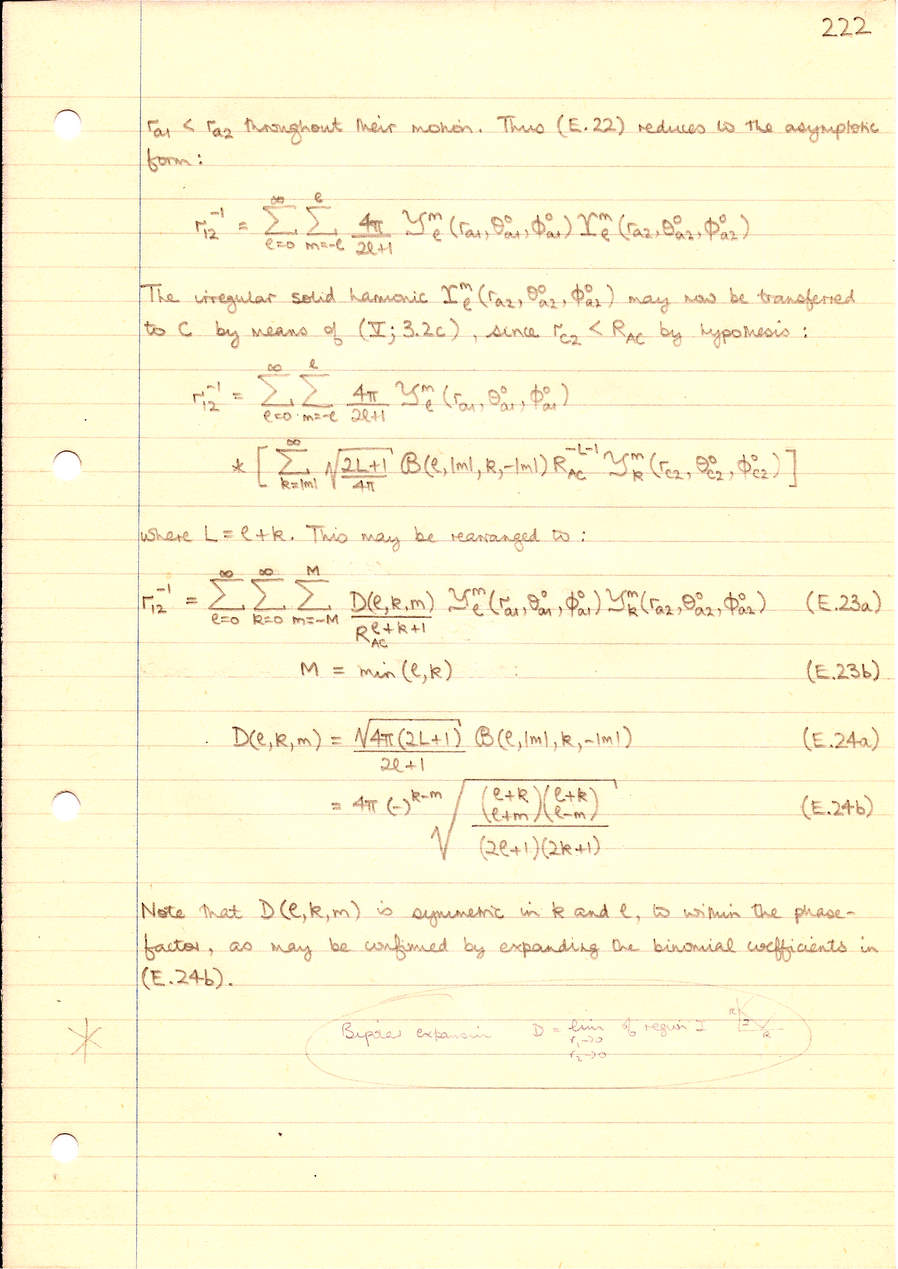 222
r_{a1} < r_{a2} throughout their motion. Thus (E.22) reduces to the asymptotic
form:
r_{12}^{-1} = \sum_{ℓ=0}^{∞} \sum_{m=-ℓ}^{ℓ} \frac{4π}{2ℓ+1} 𝒴_ℓ^m (r_{a1}, θ_{a1}^o, φ_{a1}^o) ϒ_ℓ^m (r_{a2}, θ_{a2}^o, φ_{a2}^o)
The irregular solid harmonic ϒ_ℓ^m (r_{a2}, θ_{a2}^o, φ_{a2}^o) may now be transferred
to C by means of (V; 3.2c), since r_{c2} < R_{AC} by hypothesis:
r_{12}^{-1} = \sum_{ℓ=0}^{∞} \sum_{m=-ℓ}^{ℓ} \frac{4π}{2ℓ+1} 𝒴_ℓ^m (r_{a1}, θ_{a1}^o, φ_{a1}^o)
* [ \sum_{k=|m|}^{∞} \sqrt{\frac{2L+1}{4π}} ℬ(ℓ,|m|,k,-|m|) R_{AC}^{-L-1} 𝒴_k^m (r_{c2}, θ_{c2}^o, φ_{c2}^o) ]
where L = ℓ+k. This may be rearranged to:
r_{12}^{-1} = \sum_{ℓ=0}^{∞} \sum_{k=0}^{∞} \sum_{m=-M}^{M} \frac{D(ℓ,k,m)}{R_{AC}^{ℓ+k+1}} 𝒴_ℓ^m (r_{a1}, θ_{a1}^o, φ_{a1}^o) 𝒴_k^m (r_{a2}, θ_{a2}^o, φ_{a2}^o) (E.23a)
M = min(ℓ,k) (E.23b)
D(ℓ,k,m) = \frac{\sqrt{4π(2L+1)}}{2ℓ+1} ℬ(ℓ,|m|,k,-|m|) (E.24a)
= 4π (-)^{k-m} \sqrt{\frac{\binom{ℓ+k}{ℓ+m}\binom{ℓ+k}{ℓ-m}}{(2ℓ+1)(2k+1)}} (E.24b)
Note that D(ℓ,k,m) is symmetric in k and ℓ, to within the phase-
factor, as may be confirmed by expanding the binomial coefficients in
(E.24b).
* Bipolar expansion D = \lim_{r_1→0, r_2→0} of region I